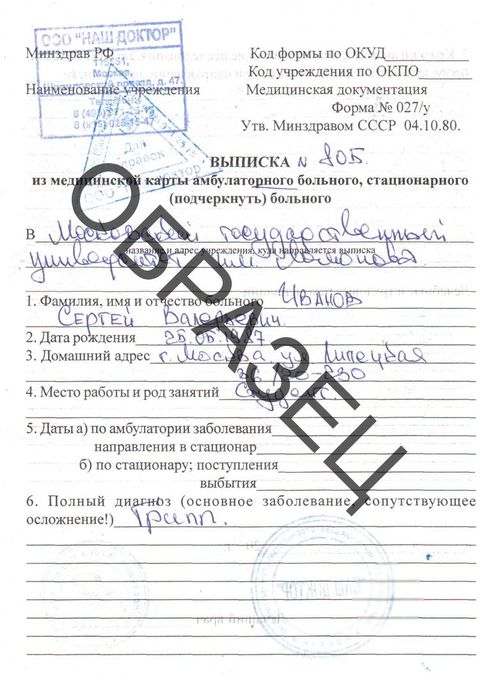 ООО "НАШ ДОКТОР"
115551,
Москва,
проезд, д. 47,
Минздрав РФ
Код формы по ОКУД
Код учреждения по ОКПО
Наименование учреждения
Медицинская документация
Форма № 027/у
Утв. Минздравом СССР 04.10.80.
Для справок
ВЫПИСКА N 805
из медицинской карты амбулаторного больного, стационарного
(подчеркнуть) больного
В Московский государственный
название и адрес учреждения, куда направляется выписка
университет им. Ломоносова
1. Фамилия, имя и отчество больного Иванов
Сергей Валерьевич
2. Дата рождения
3. Домашний адрес г. Москва ул Липецкая
4. Место работы и род занятий Студент
5. Даты а) по амбулатории заболевания
направления в стационар
б) по стационару; поступления
выбытия
6. Полный диагноз (основное заболевание, сопутствующее
осложнение!) Грипп.
ОБРАЗЕЦ